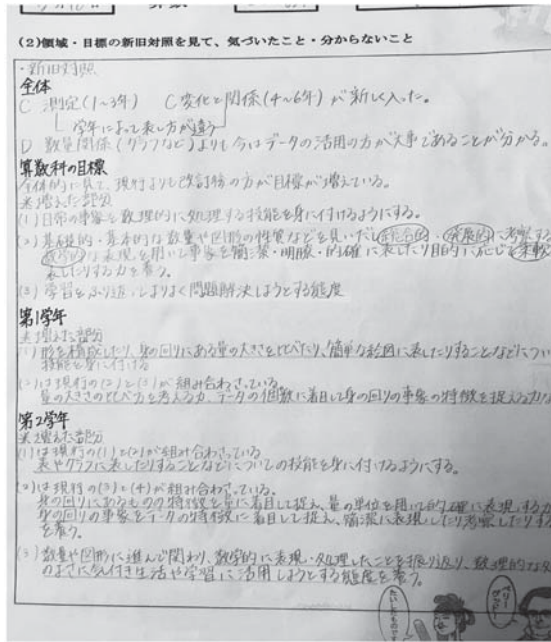 (2)領域・目標の新旧対照を見て、気づいたこと・分からないこと
・新旧対照
全体
C 測定(1~3年) C 変化と関係(4~6年)が新しく入った。
学年によって表し方が違う
D 数量関係(グラフなど)よりも今はデータの活用の方が大事であることが分かる。
算数科の目標
全体的に見て、現行よりも改訂後の方が目標が増えている。
※増えた部分
(1)日常の事象を数理的に処理する技能を身に付けるようにする。
(2)基礎的・基本的な数量や図形の性質などを見いだし統合的・発展的に考察する
数学的な表現を用いて事象を簡潔・明瞭・的確に表したり目的に応じて柔軟
表したりする力を養う。
(3)学習をふり返ってよりよく問題解決しようとする態度
第1学年
※増えた部分
(1)形を構成したり、身の回りにある量の大きさを比べたり、簡単な絵図に表したりすることなどについ
技能を身に付ける
(2)は現行の(2)と(3)が組み合わさっている。
量の大きさの比べ方を考える力、データの個数に着目して身の回りの事象の特徴を捉える力
第2学年
※増えた部分
(1)は現行の(1)と(2)が組み合わさっている
表やグラフに表したりすることなどについての技能を身に付けるようにする。
(2)は現行の(3)と(4)が組み合わさっている。
身の回りにあるものの特徴を量に着目して捉え、量の単位を用いて的確に表現する力
身の回りの事象をデータの特徴に着目して捉え、簡潔に表現したり考察したりする
を養う。
(3)数量や図形に進んで関わり、数学的に表現・処理したことを振り返り、数理的な処
のよさに気付き生活や学習に活用しようとする態度を養う。